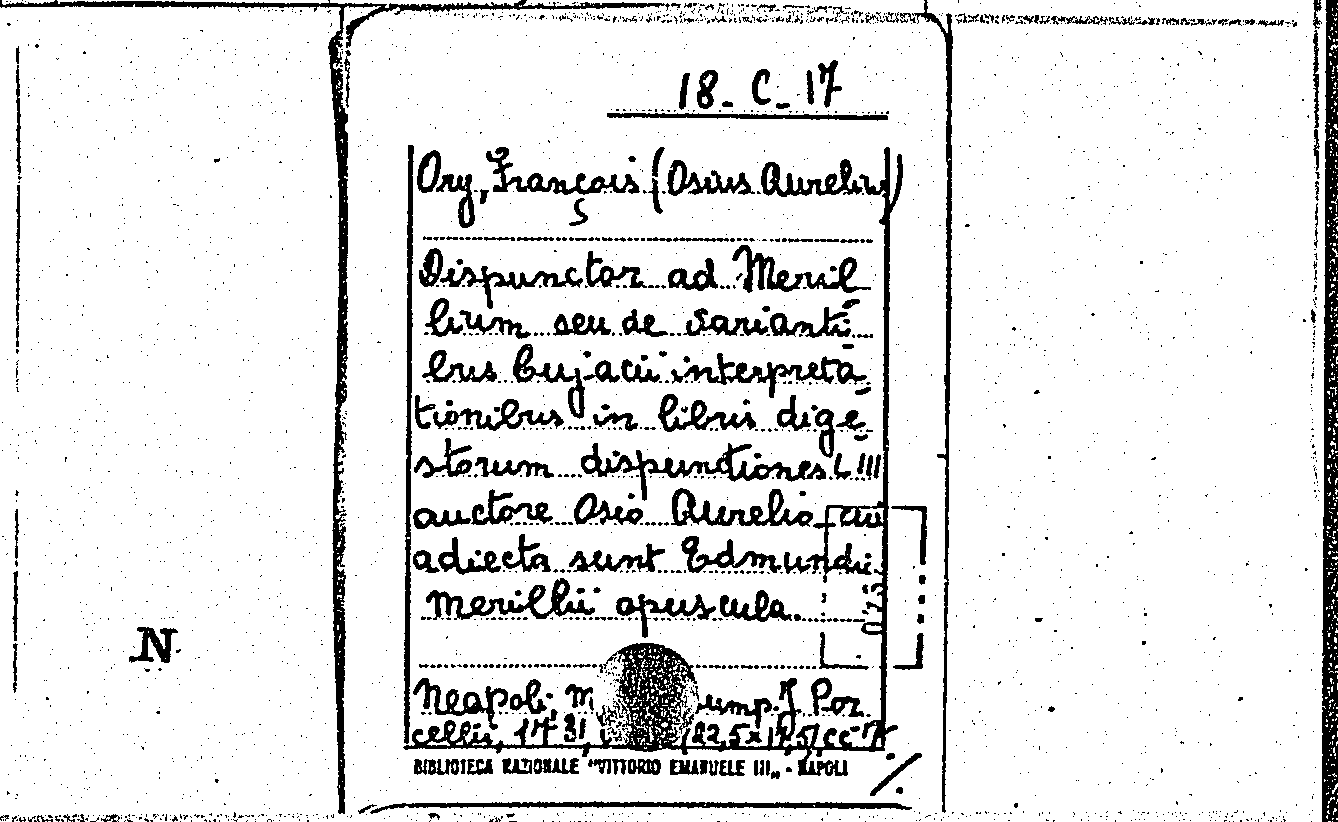 18_ C_ 17
Ory, François (Osius Aurelius)
Dispunctor ad Meril
lium seu de variantī
bus Cujacii interpretā
tionibus in libris digē
storum dispunctiones L III
auctore Osio Aurelio cui
adiecta sunt Edmundi
Merillii opuscula.
Neapoli, ump. J. Por
cellii, 1731, (22,5x17,5) cc
BIBLIOTECA NAZIONALE "VITTORIO EMANUELE III„ - NAPOLI
N